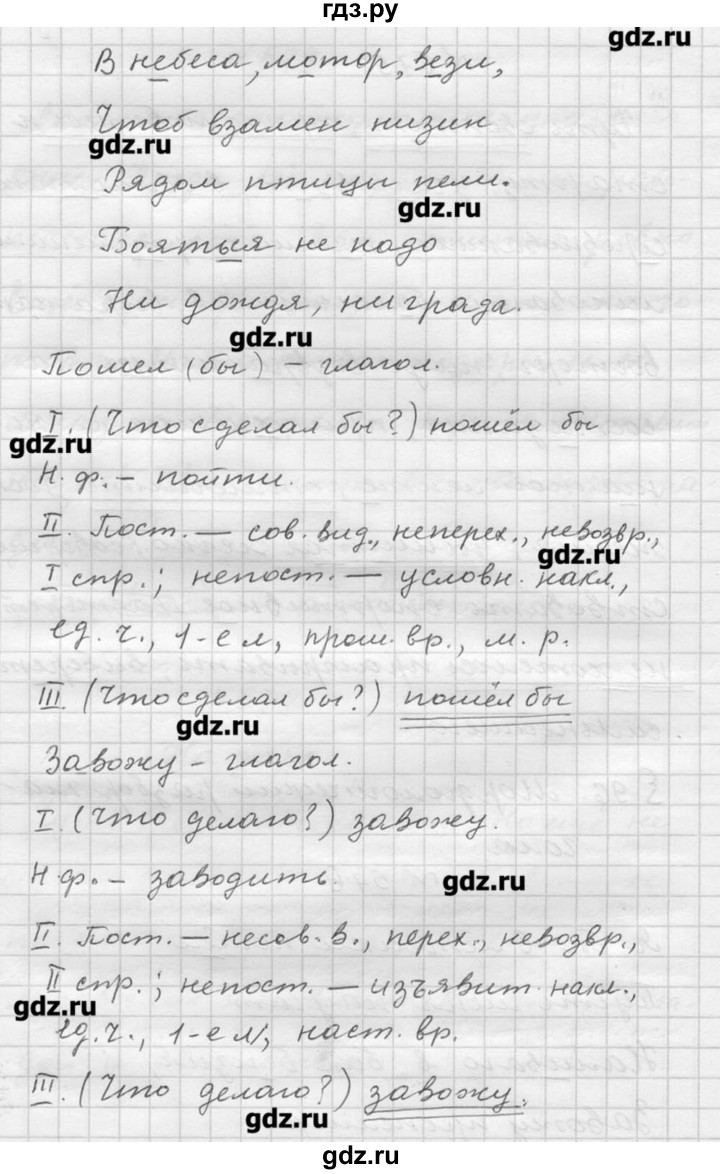 гдз.ру
gdz.ru
В небеса, мотор, вези,
Чтоб взамен низин
gdz.ru
Рядом птицы пели.
gdz.ru
Бояться не надо
Ни дождя, ни града.
gdz.ru
Пошел (бы) – глагол.
I. (Что сделал бы?) пошёл бы
gdz.ru
Н.ф. – пойти.
II. Пост. — сов. вид., неперех., невозвр.,
gdz.ru
I спр.; непост. — условн. накл.,
ед. ч., 1-е л, прош. вр., м. р.
III. (Что сделал бы?) пошёл бы
gdz.ru
Завожу – глагол.
I. (Что делаю?) завожу.
Н.ф. – заводить.
gdz.ru
II. Пост. — несов. в., перех., невозвр.,
II спр.; непост. — изъявит. накл.,
gdz.ru
ед. ч., 1-е л, наст. вр.
III. (Что делаю?) завожу.
gdz.ru
gdz.ru